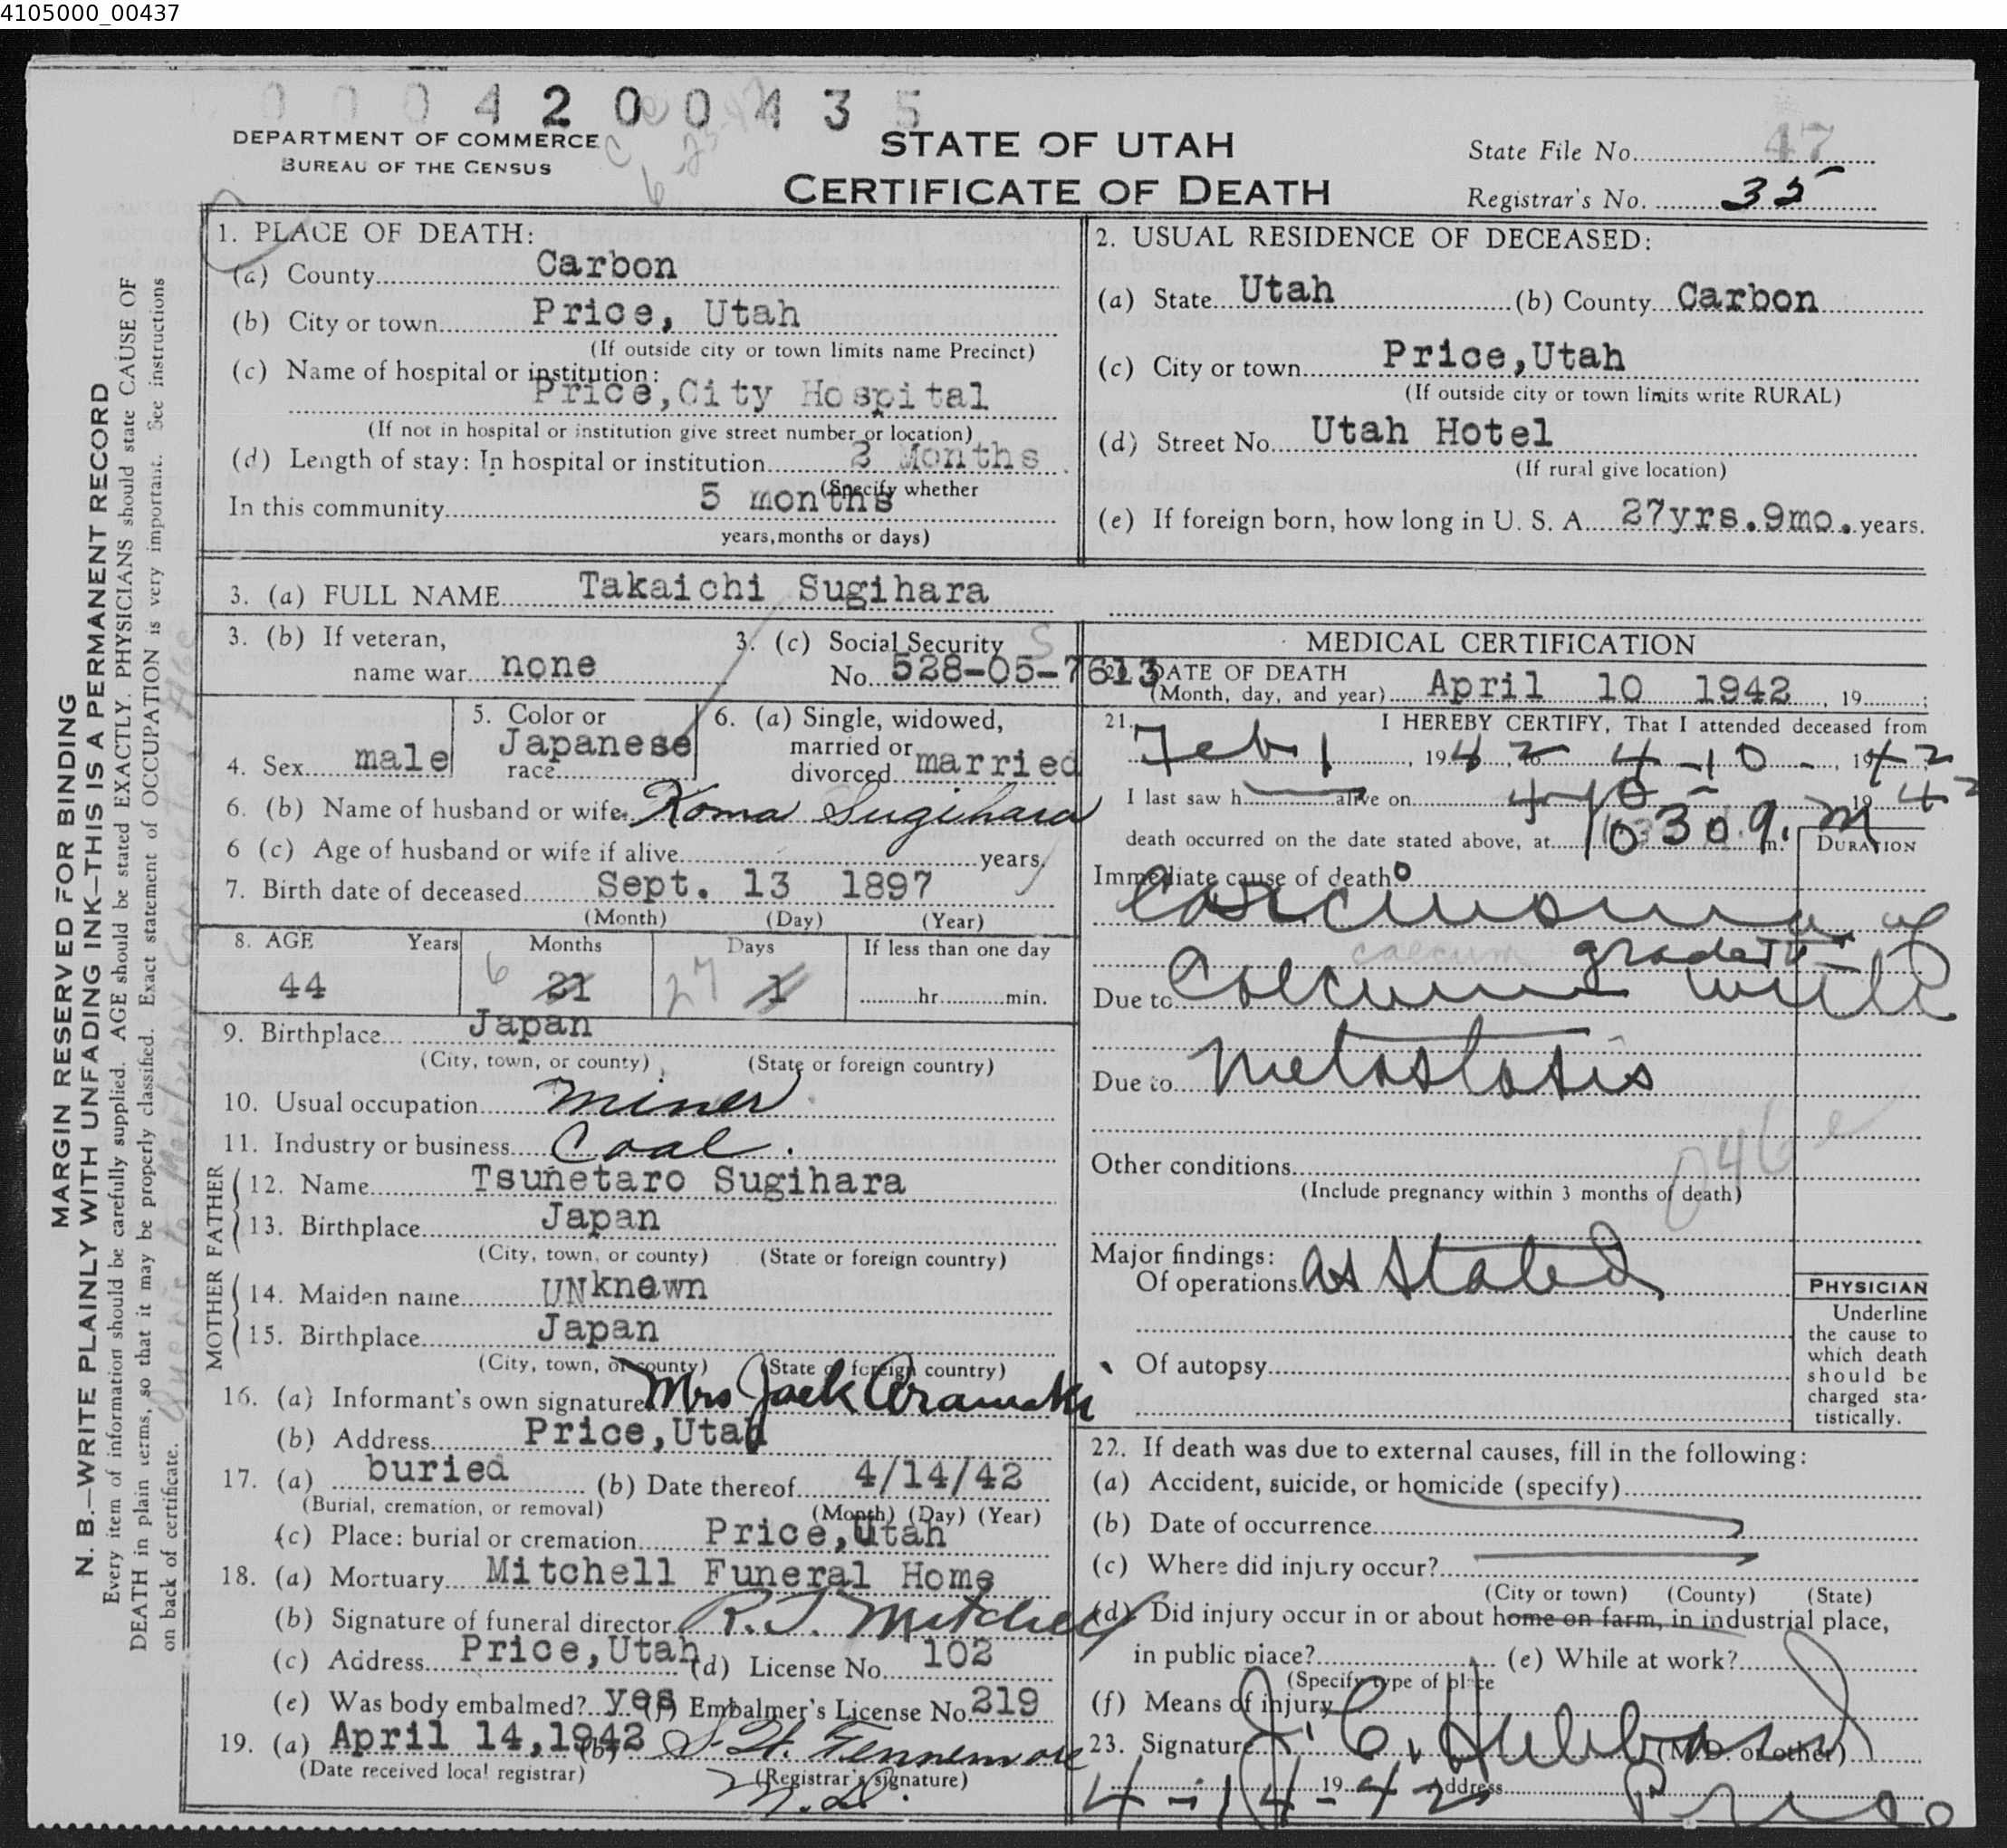 4105000_00437
0 0 0 4 2 0 0 4 3 5
DEPARTMENT OF COMMERCE
BUREAU OF THE CENSUS
STATE OF UTAH
CERTIFICATE OF DEATH
State File No. 47
Registrar's No. 35
MARGIN RESERVED FOR BINDING
N. B.—WRITE PLAINLY WITH UNFADING INK—THIS IS A PERMANENT RECORD
Every item of information should be carefully supplied. AGE should be stated EXACTLY. PHYSICIANS should state CAUSE OF
DEATH in plain terms, so that it may be properly classified. Exact statement of OCCUPATION is very important. See instructions
on back of certificate.
1. PLACE OF DEATH:
(a) County Carbon
(b) City or town Price, Utah
(If outside city or town limits name Precinct)
(c) Name of hospital or institution:
Price, City Hospital
(If not in hospital or institution give street number or location)
(d) Length of stay: In hospital or institution 3 Months
(Specify whether
In this community 5 months
years, months or days)
2. USUAL RESIDENCE OF DECEASED:
(a) State Utah (b) County Carbon
(c) City or town Price, Utah
(If outside city or town limits write RURAL)
(d) Street No. Utah Hotel
(If rural give location)
(e) If foreign born, how long in U. S. A. 27yrs. 9mo. years.
3. (a) FULL NAME Takaichi Sugihara
3. (b) If veteran,
name war none
3. (c) Social Security
No. 528-05-7613
4. Sex male
5. Color or
race Japanese
6. (a) Single, widowed,
married or
divorced married
6. (b) Name of husband or wife Koma Sugihara
6 (c) Age of husband or wife if alive years.
7. Birth date of deceased Sept. 13 1897
(Month) (Day) (Year)
8. AGE Years Months Days If less than one day
44 6 21 27 1 hr. min.
9. Birthplace Japan
(City, town, or county) (State or foreign country)
10. Usual occupation Miner
11. Industry or business Coal.
FATHER
12. Name Tsunetaro Sugihara
13. Birthplace Japan
(City, town, or county) (State or foreign country)
MOTHER
14. Maiden name UNknewn
15. Birthplace Japan
(City, town, or county) (State or foreign country)
16. (a) Informant's own signature Mrs Jack
(b) Address Price, Utah
17. (a) buried (b) Date thereof 4/14/42
(Burial, cremation, or removal) (Month) (Day) (Year)
(c) Place: burial or cremation Price, Utah
18. (a) Mortuary Mitchell Funeral Home
(b) Signature of funeral director Mitchell
(c) Address Price, Utah (d) License No. 102
(e) Was body embalmed? yes (f) Embalmer's License No. 219
19. (a) April 14, 1942 (b) Fennemore
(Date received local registrar) (Registrar's signature)
M.D.
MEDICAL CERTIFICATION
20. DATE OF DEATH
(Month, day, and year) April 10 1942, 19 ;
21. I HEREBY CERTIFY, That I attended deceased from
Feb 1, 1942, to 4-10-, 1942
I last saw h alive on 4-10 1942
death occurred on the date stated above, at 1030 a. m.
DURATION
Immediate cause of death
Carcinoma of
caecum grade IV
Due to Coecum with
Due to Metastasis
046e
Other conditions
(Include pregnancy within 3 months of death)
Major findings:
Of operations As Stated
Of autopsy
PHYSICIAN
Underline
the cause to
which death
should be
charged sta-
tistically.
22. If death was due to external causes, fill in the following:
(a) Accident, suicide, or homicide (specify)
(b) Date of occurrence
(c) Where did injury occur?
(City or town) (County) (State)
(d) Did injury occur in or about home on farm, in industrial place,
in public place? (e) While at work?
(Specify type of place
(f) Means of injury
23. Signature J. C. Hubbard (M.D. or other)
4-14-1942 Address Price